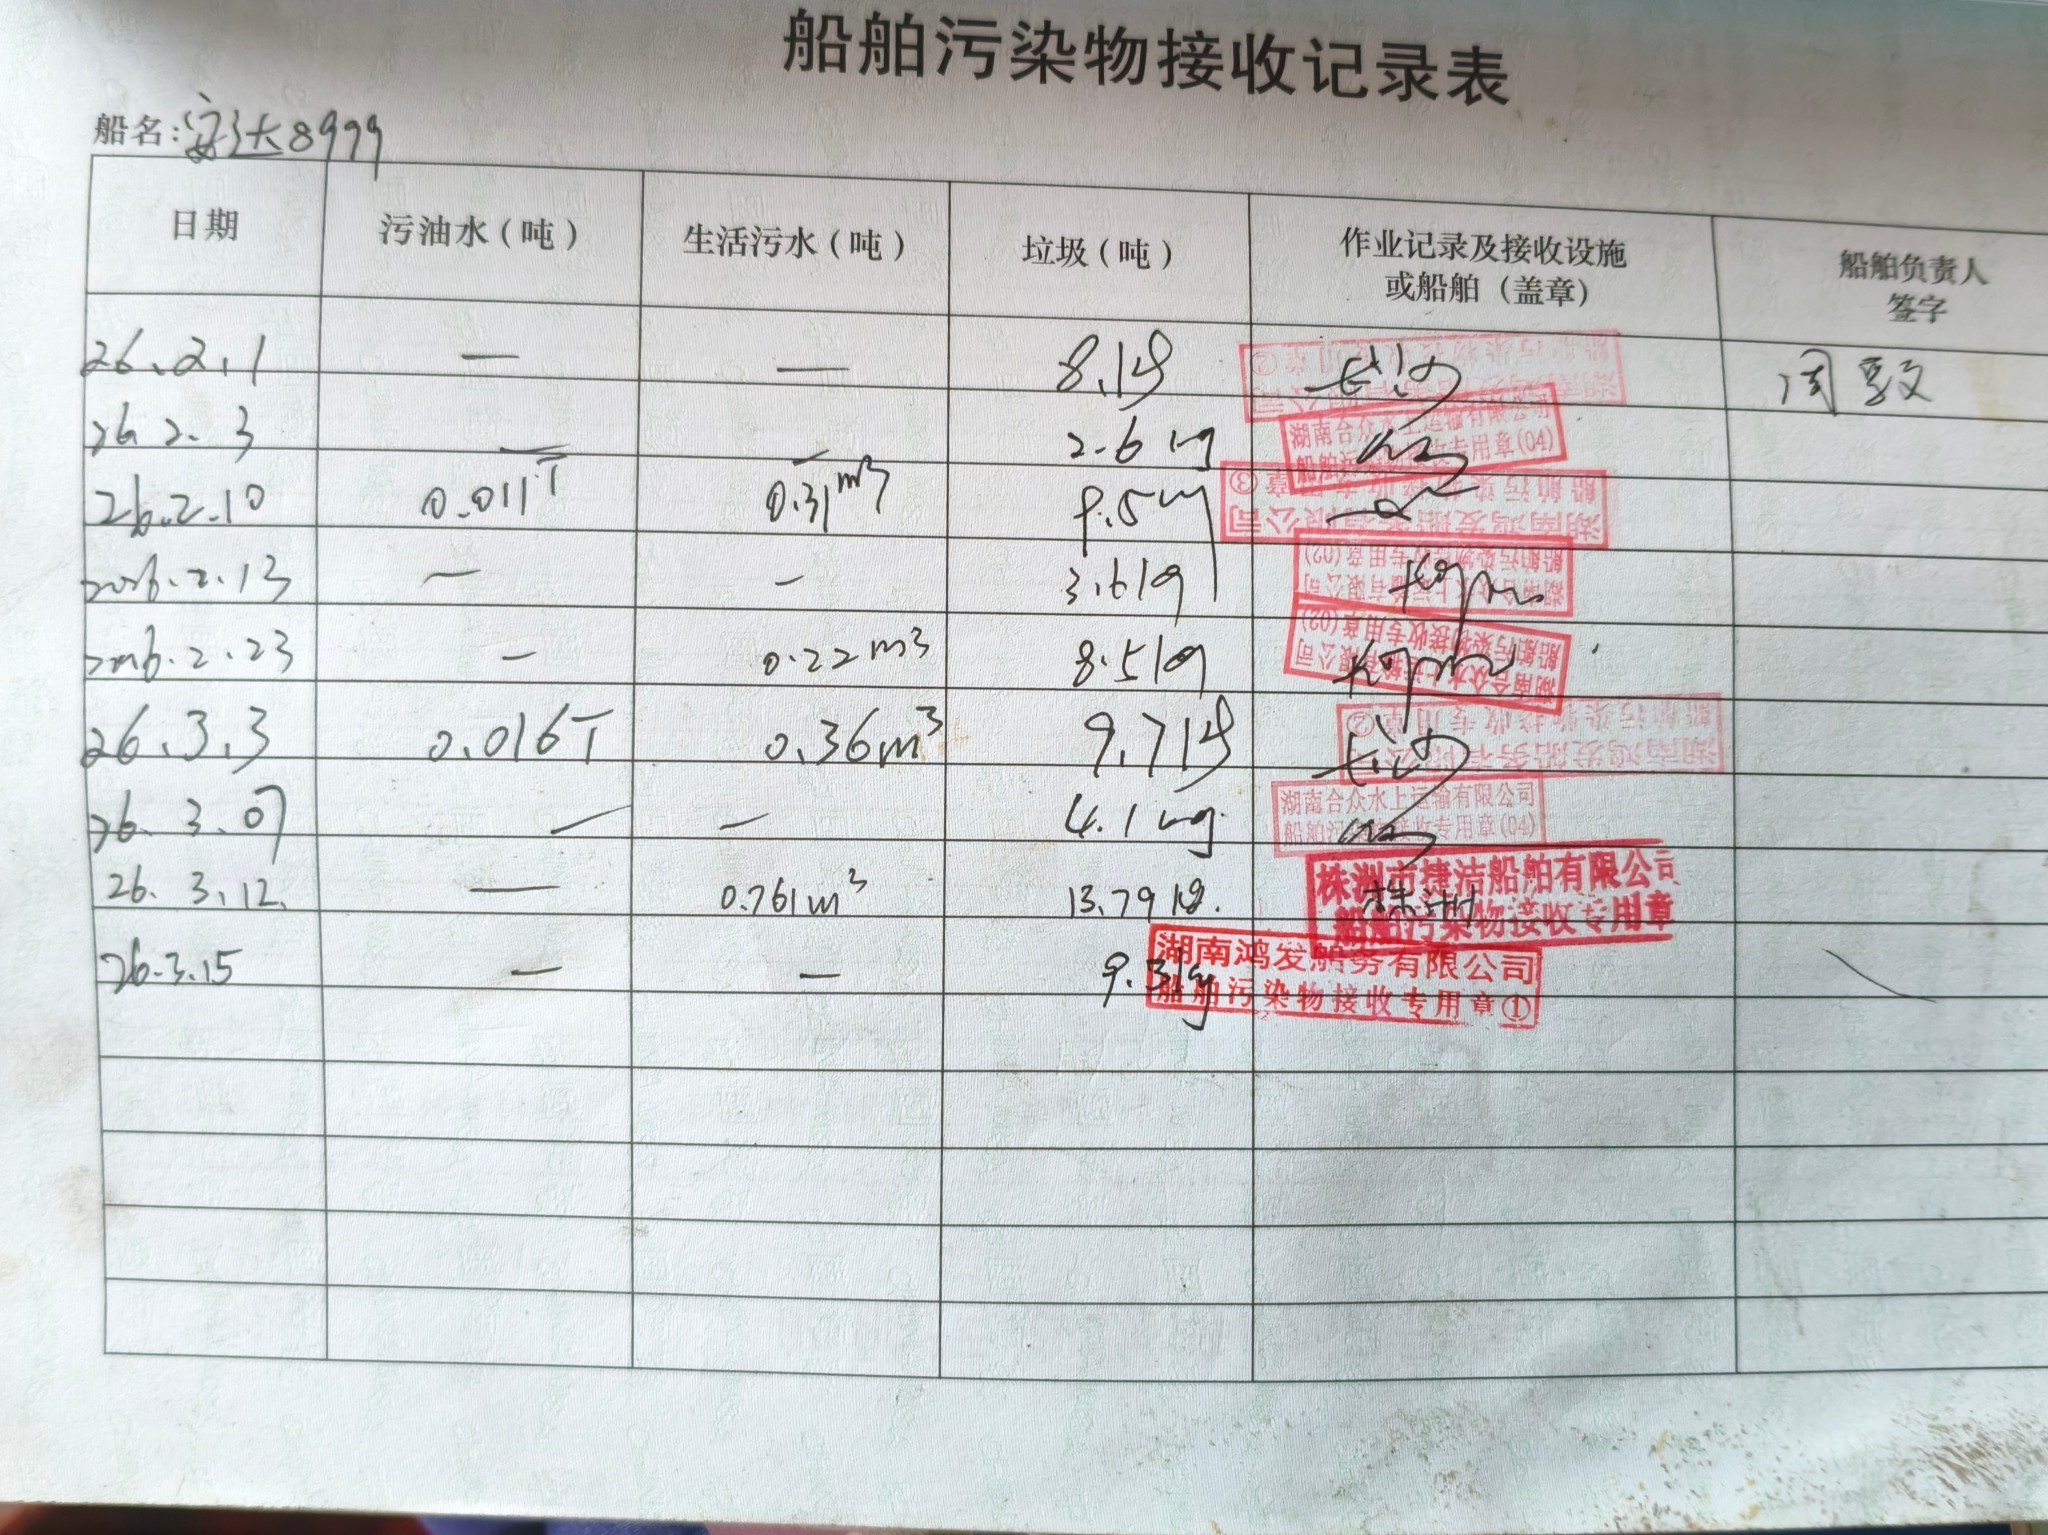 船舶污染物接收记录表
船名:安达8999
日期 污油水(吨) 生活污水(吨) 垃圾(吨) 作业记录及接收设施或船舶(盖章) 船舶负责人签字
26.2.1 — — 8.1kg 长沙 周
26.2.3 — — 2.6kg 湖南合众水上运输有限公司 船舶污染物接收专用章(04)
26.2.10 0.011T 0.31m³ 9.5kg 湖南鸿发船务有限公司 船舶污染物接收专用章③
2026.2.13 — — 3.6kg 湖南合众水上运输有限公司 船舶污染物接收专用章(02)
2026.2.23 — 0.22m³ 8.5kg 湖南合众水上运输有限公司 船舶污染物接收专用章(02)
26.3.3 0.016T 0.36m³ 9.7kg 长沙 湖南鸿发船务有限公司 船舶污染物接收专用章②
26.3.07 — — 4.1kg 湖南合众水上运输有限公司 船舶污染物接收专用章(04)
26.3.12. — 0.761m³ 13.79kg. 株洲 株洲市捷洁船舶有限公司 船舶污染物接收专用章
26.3.15 — — 9.3kg 湖南鸿发船务有限公司 船舶污染物接收专用章①